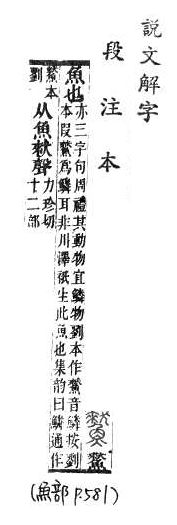 說文解字
段注本
魚也
亦三字句周禮其動物宜鱗物劉本作音鱗按劉
本叚爲鱗耳非川澤衹生此魚也集韵曰鱗通作
本
劉
从魚猌聲
力珍切
十二部
(魚部 P.581)